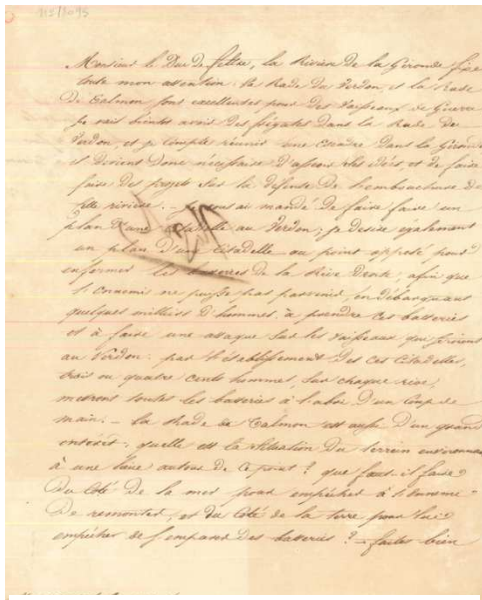 Monsieur le Duc de feltre, la Rivière de la Gironde fixe
toute mon attention. la Rade du Verdon, et la Rade
De Talmon sont excellentes pour des Vaisseaux de Guerre
je vais bientot avoir des frégates dans la Rade du
Verdon, et je comptes réunir une Escadre dans la Gironde
il devient donc nécessaire D'asseoir les idées et de faire
faire des projets sur la défense de l'embouchure de
cette rivière. - je vous ai mandé de faire faire un
plan D'une Citadelle au Verdon; je desire également
un plan D'une Citadelle au point opposé pour
enfermer les batteries de la Rive Droite, afin que
l'Ennemi ne puisse pas parvenir, en débarquant
quelques milliers d'hommes, à prendre ces batteries
et à faire une attaque sur les vaisseaux qui seroient
au Verdon. par l'établissement des ces Citadelles,
trois ou quatre cents hommes, sur chaque rive,
mettront toutes les batteries à l'abri D'un Coup de
main. - la Rade de Talmon est aussi D'un grand
intérêt: quelle est la Situation du terrein environnant
à une lieue autour de ce point? que faut-il faire
Du Coté De la mer pour empêcher à l'Ennemi
De remonter, et du Coté de la terre pour l'
empêcher de s'emparer des batteries? - faites bien